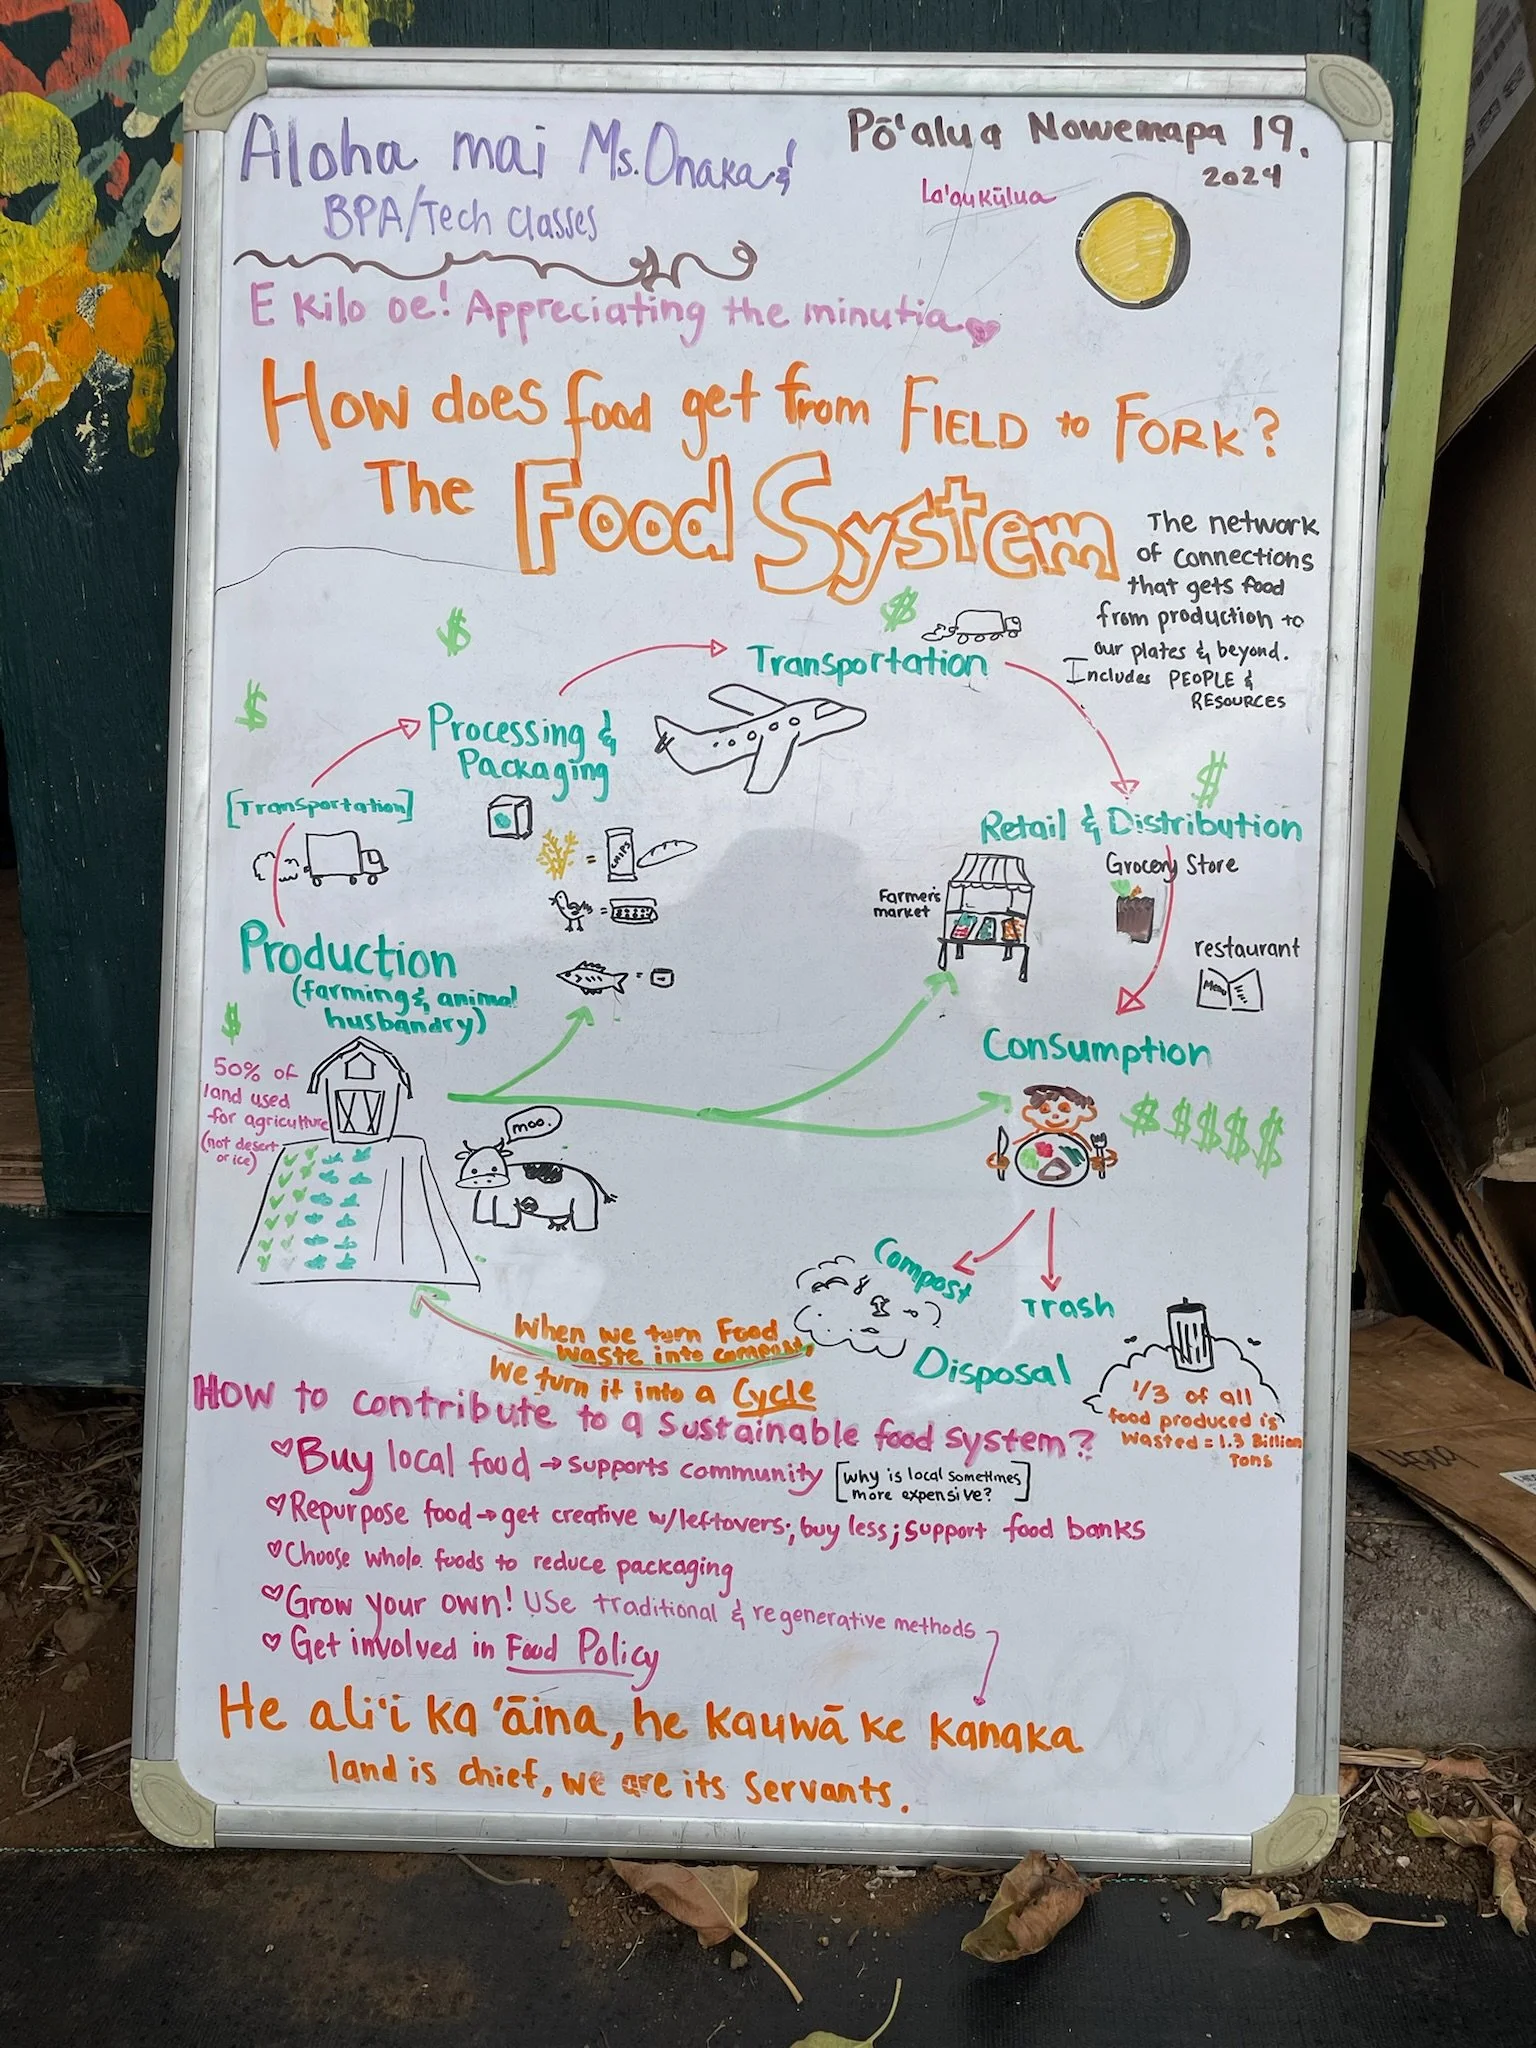 Aloha mai Ms. Onaka &
BPA/Tech classes
Pō'alua Nowemapa 19,
2024
La'aukūlua
E Kilo oe! Appreciating the minutia
How does food get from FIELD to FORK?
The Food System
The network
of connections
that gets food
from production to
our plates & beyond.
Includes PEOPLE &
RESOURCES
$
$
$
Transportation
Processing &
Packaging
[Transportation]
$
Retail & Distribution
Grocery Store
Farmer's
market
restaurant
Menu
= CHIPS
=
=
Production
(farming & animal
husbandry)
$
50% of
land used
for agriculture
(not desert
or ice)
moo.
Consumption
$ $ $ $ $
Compost
Trash
Disposal
When we turn Food
waste into compost,
We turn it into a Cycle
1/3 of all
food produced is
wasted = 1.3 Billion
Tons
How to contribute to a sustainable food system?
Buy local food → supports community [why is local sometimes
more expensive?]
Repurpose food → get creative w/leftovers; buy less; support food banks
Choose whole foods to reduce packaging
Grow your own! Use traditional & regenerative methods
Get involved in Food Policy
He ali'i ka 'āina, he kauwā ke kanaka
land is chief, we are its servants.